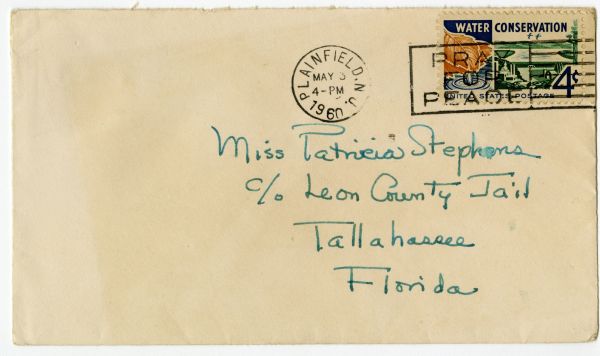 WATER CONSERVATION
4¢
UNITED STATES POSTAGE
PLAINFIELD, N.J.
MAY 3
4-PM
1960
PRAY
FOR
PEACE
Miss Patricia Stephens
c/o Leon County Jail
Tallahassee
Florida